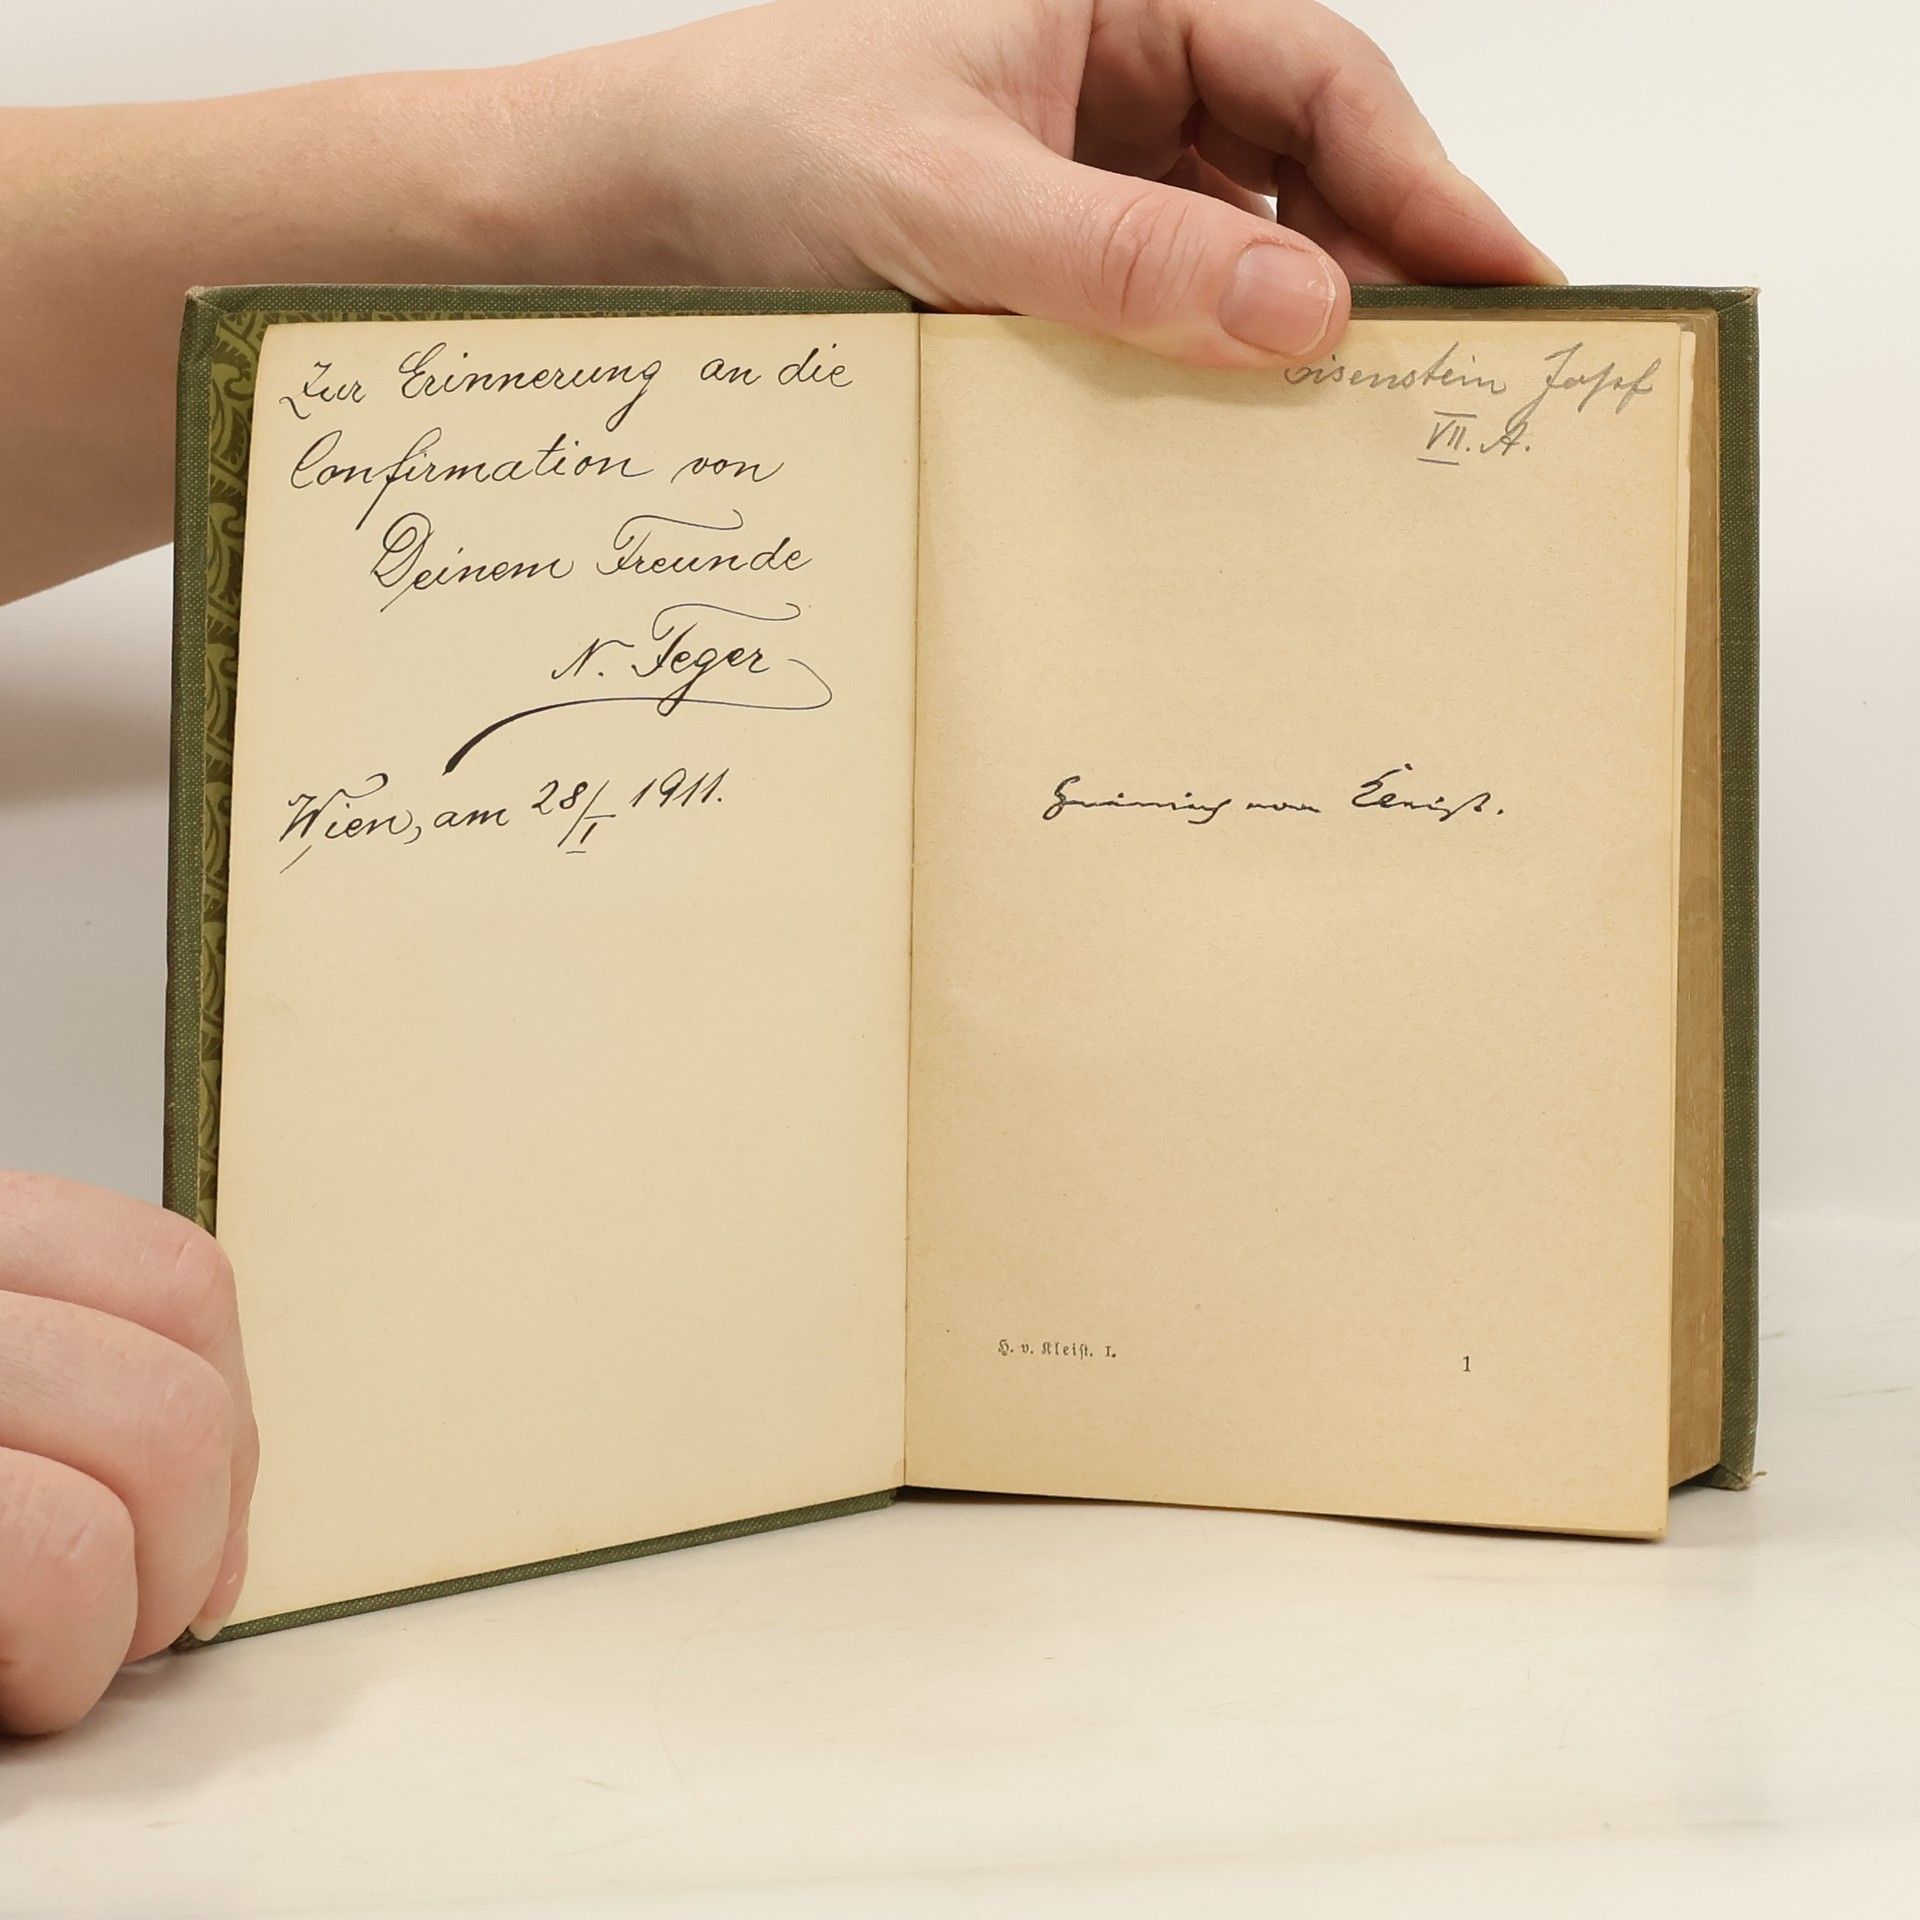 Zur Erinnerung an die
Confirmation von
Deinem Freunde
N. Feger
Wien, am 28/I 1911.
Eisenstein
VII. A.
Heinrich von Kleist.
H. v. Kleist. I.
1